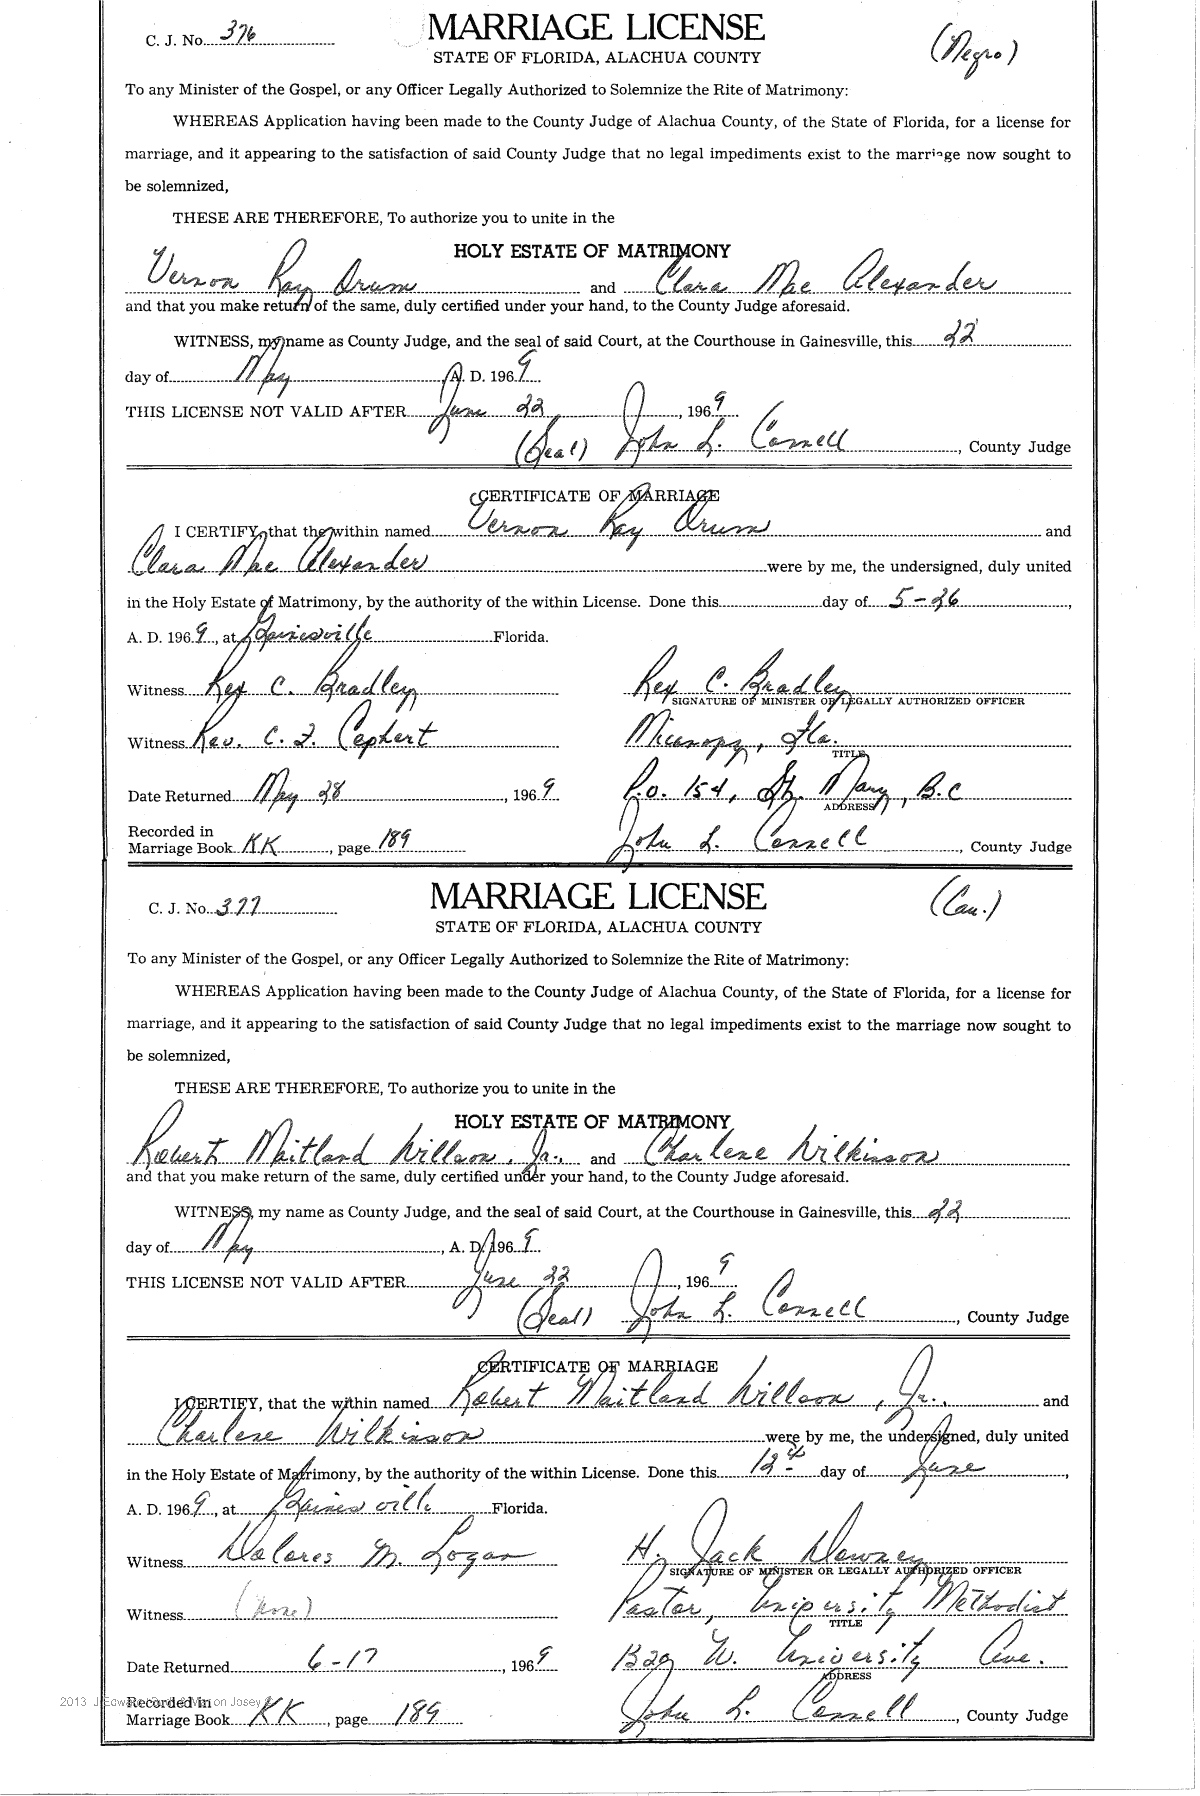 C. J. No. 376 MARRIAGE LICENSE (Negro)
STATE OF FLORIDA, ALACHUA COUNTY
To any Minister of the Gospel, or any Officer Legally Authorized to Solemnize the Rite of Matrimony:
WHEREAS Application having been made to the County Judge of Alachua County, of the State of Florida, for a license for
marriage, and it appearing to the satisfaction of said County Judge that no legal impediments exist to the marriage now sought to
be solemnized,
THESE ARE THEREFORE, To authorize you to unite in the
HOLY ESTATE OF MATRIMONY
Vernon Ray Drum and Clara Mae Alexander
and that you make return of the same, duly certified under your hand, to the County Judge aforesaid.
WITNESS, my name as County Judge, and the seal of said Court, at the Courthouse in Gainesville, this 22
day of May A. D. 1969
THIS LICENSE NOT VALID AFTER June 22, 1969
(Seal) John L. Connell, County Judge
CERTIFICATE OF MARRIAGE
I CERTIFY, that the within named Vernon Ray Drum and
Clara Mae Alexander were by me, the undersigned, duly united
in the Holy Estate of Matrimony, by the authority of the within License. Done this day of 5-26,
A. D. 1969, at Gainesville Florida.
Witness Rex C. Bradley Rex C. Bradley
SIGNATURE OF MINISTER OR LEGALLY AUTHORIZED OFFICER
Witness Rev. C. F. Cephert Micanopy, Fla.
TITLE
Date Returned May 28, 1969 P.O. 154, St. Mary, B.C
ADDRESS
Recorded in
Marriage Book KK, page 189 John L. Connell, County Judge
C. J. No. 377 MARRIAGE LICENSE (Cau.)
STATE OF FLORIDA, ALACHUA COUNTY
To any Minister of the Gospel, or any Officer Legally Authorized to Solemnize the Rite of Matrimony:
WHEREAS Application having been made to the County Judge of Alachua County, of the State of Florida, for a license for
marriage, and it appearing to the satisfaction of said County Judge that no legal impediments exist to the marriage now sought to
be solemnized,
THESE ARE THEREFORE, To authorize you to unite in the
HOLY ESTATE OF MATRIMONY
Robert Maitland Willson, Jr., and Charlene Wilkinson
and that you make return of the same, duly certified under your hand, to the County Judge aforesaid.
WITNESS, my name as County Judge, and the seal of said Court, at the Courthouse in Gainesville, this 22
day of May, A. D. 1969
THIS LICENSE NOT VALID AFTER June 22, 1969
(Seal) John L. Connell, County Judge
CERTIFICATE OF MARRIAGE
I CERTIFY, that the within named Robert Maitland Willson, Jr., and
Charlene Wilkinson were by me, the undersigned, duly united
in the Holy Estate of Matrimony, by the authority of the within License. Done this 12th day of June,
A. D. 1969, at Gainesville Florida.
Witness Dolores M. Logan H. Jack Downey
SIGNATURE OF MINISTER OR LEGALLY AUTHORIZED OFFICER
Witness (none) Pastor, University Methodist
TITLE
Date Returned 6-17, 1969 1320 W. University Ave.
ADDRESS
Recorded in
Marriage Book KK, page 189 John L. Connell, County Judge